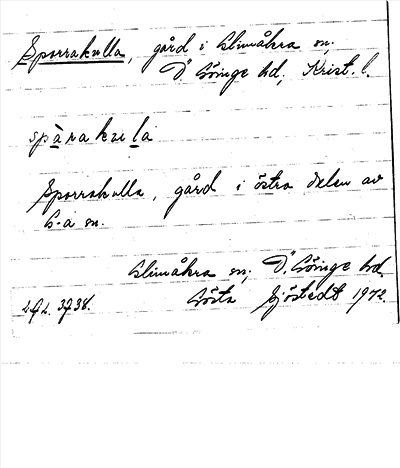 Sporrakulla, gård i Glimåkra sn,
Ö Göinge hd, Krist. l.
spàrakula
Sporrakulla, gård i östra delen av
G-a sn.
Glimåkra sn, Ö. Göinge hd,
Gösta Sjöstedt 1972.